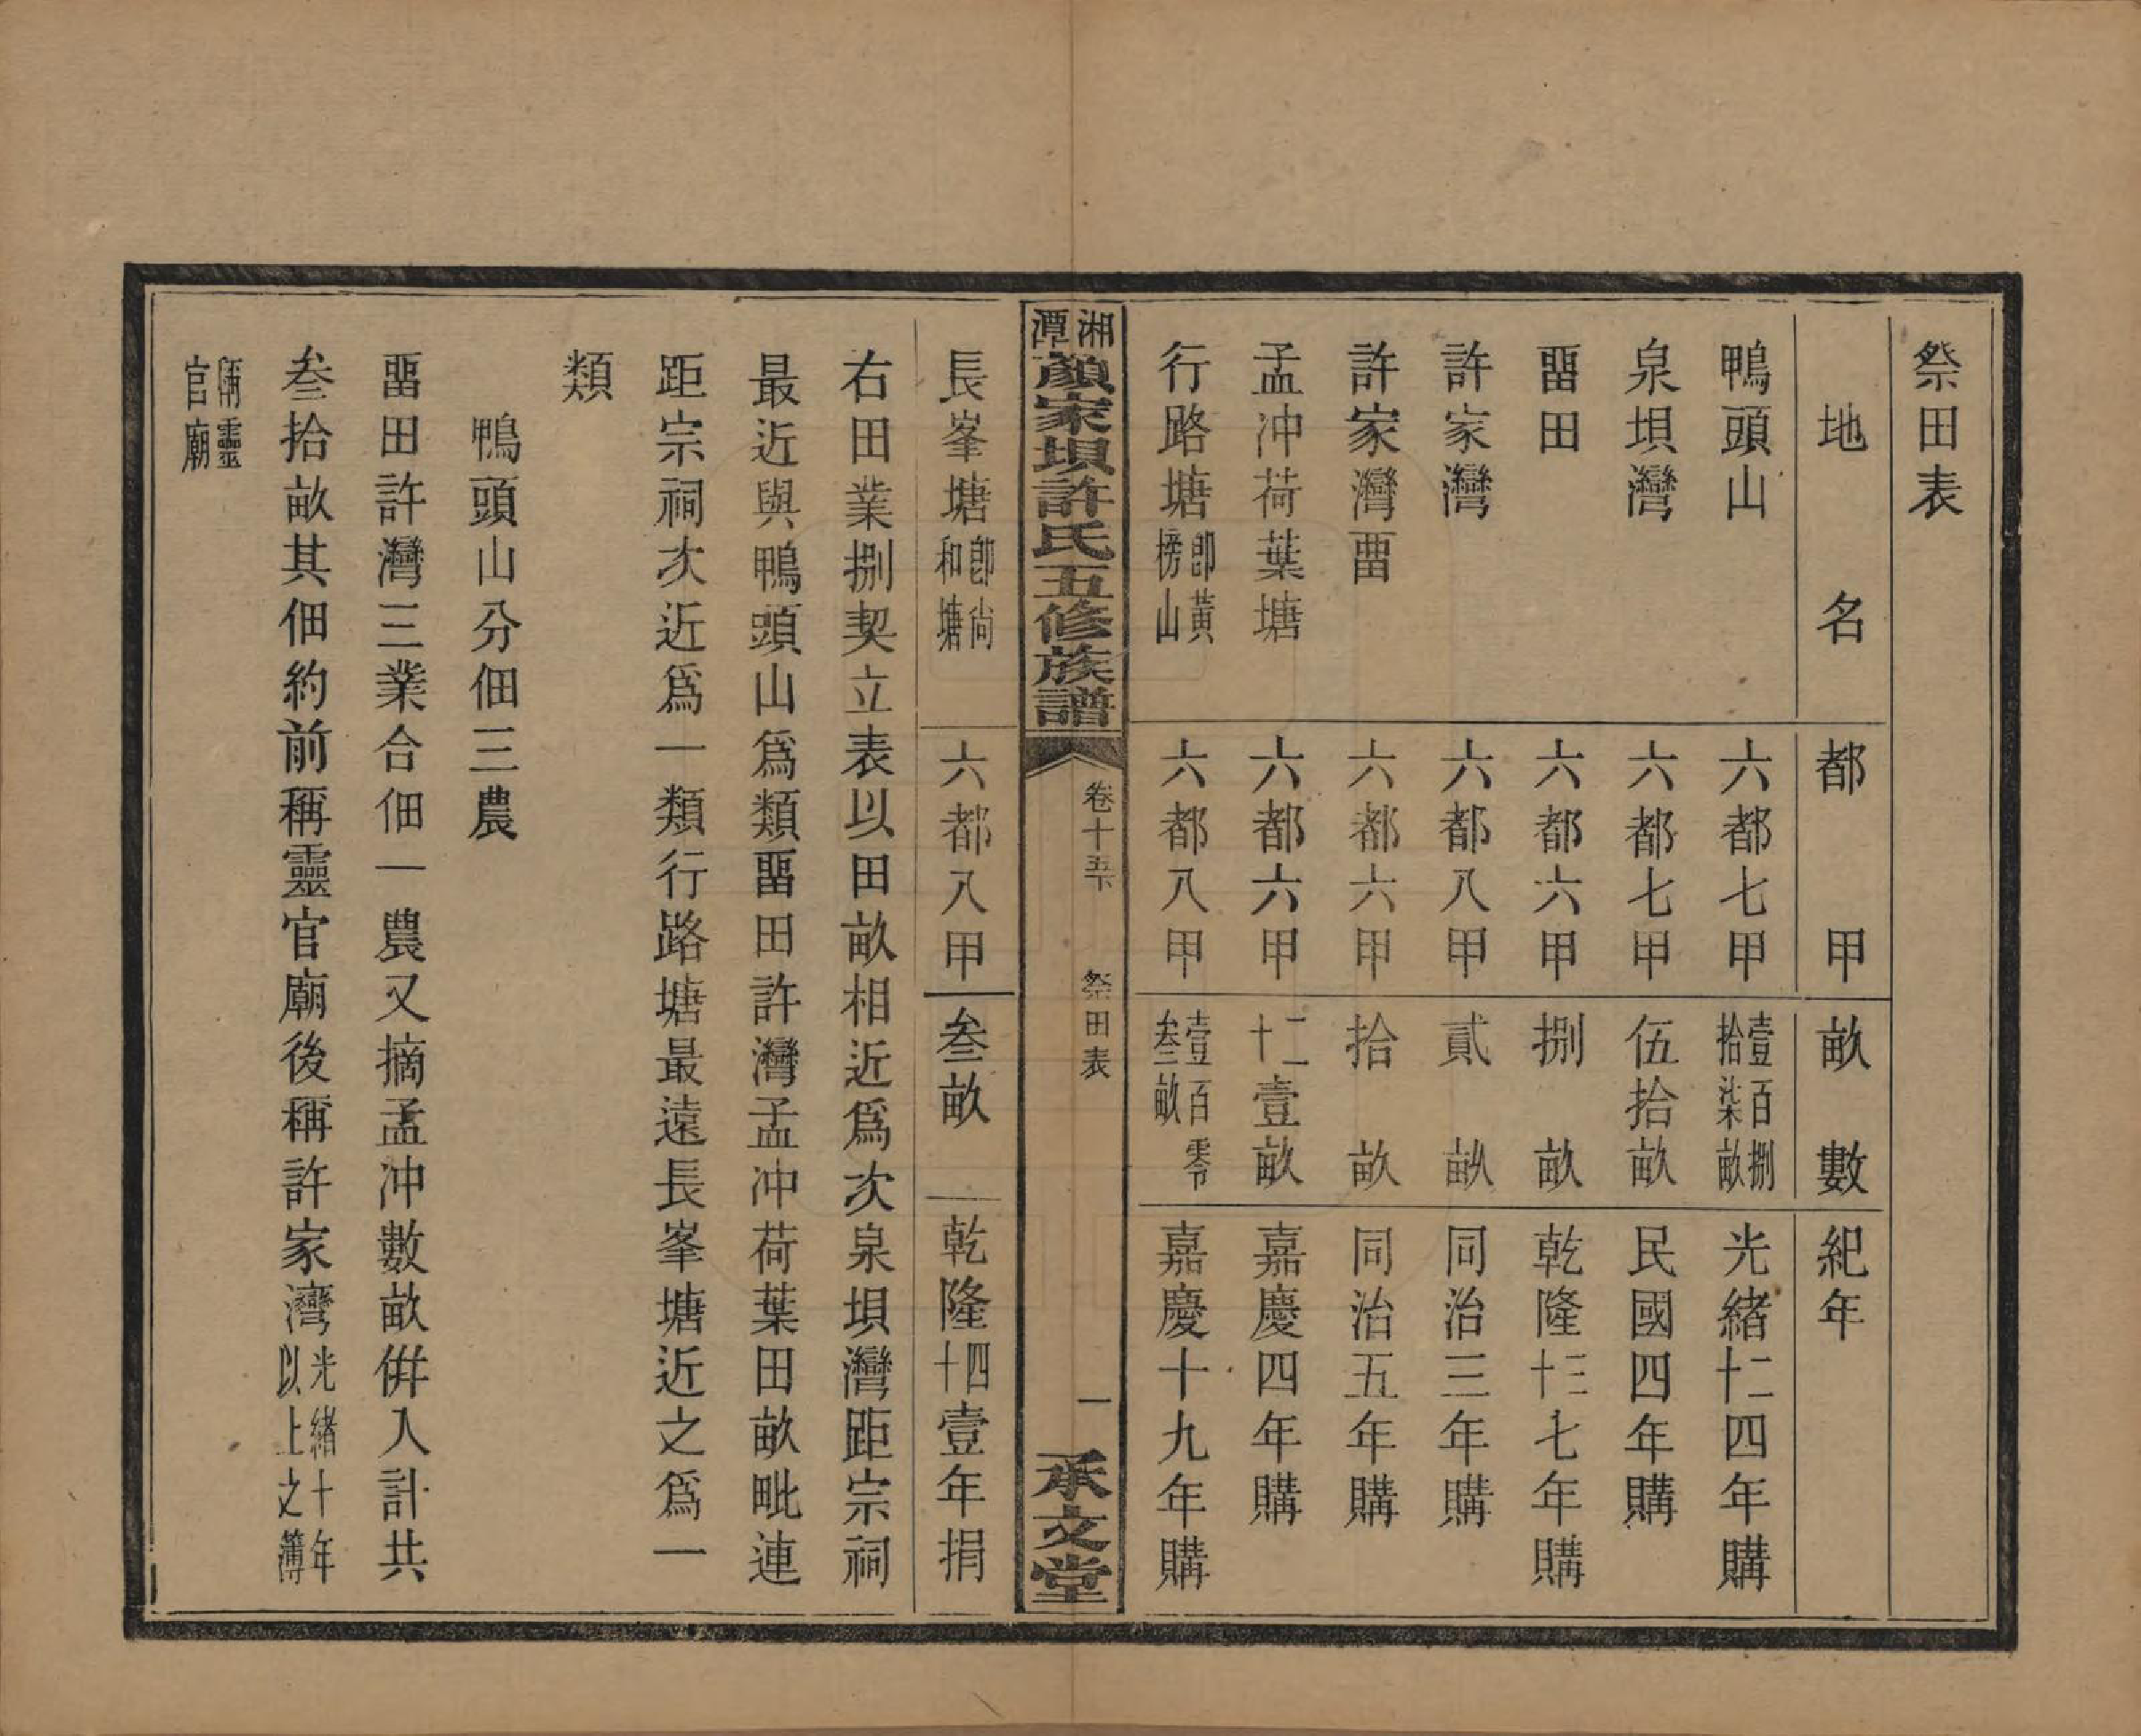 祭田表
地名　都甲　畝數　紀年
鴨頭山　六都七甲　壹百捌拾柒畝　光緒二十四年購
泉坝灣　六都七甲　伍拾畝　民國四年購
畱田　六都六甲　捌畝　乾隆三十七年購
許家灣　六都八甲　貳畝　同治三年購
許家灣畱　六都六甲　拾畝　同治五年購
孟冲荷葉塘　六都六甲　二十壹畝　嘉慶四年購
行路塘即黃榜山　六都八甲　壹百零叁畝　嘉慶十九年購
湘潭顏家坝許氏五修族譜　卷十五下　祭田表　一　承文堂
長峯塘卽尙和塘　六都八甲　叁畝　乾隆四十壹年捐
右田業捌契立表以田畝相近爲次泉坝灣距宗祠
最近與鴨頭山爲類畱田許灣孟冲荷葉田畝毗連
距宗祠次近爲一類行路塘最遠長峯塘近之爲一
類
鴨頭山分佃三農
畱田許灣三業合佃一農又摘孟冲數畝併入計共
叁拾畝其佃約前稱靈官廟後稱許家灣光緒十年以上之簿
靈官廟